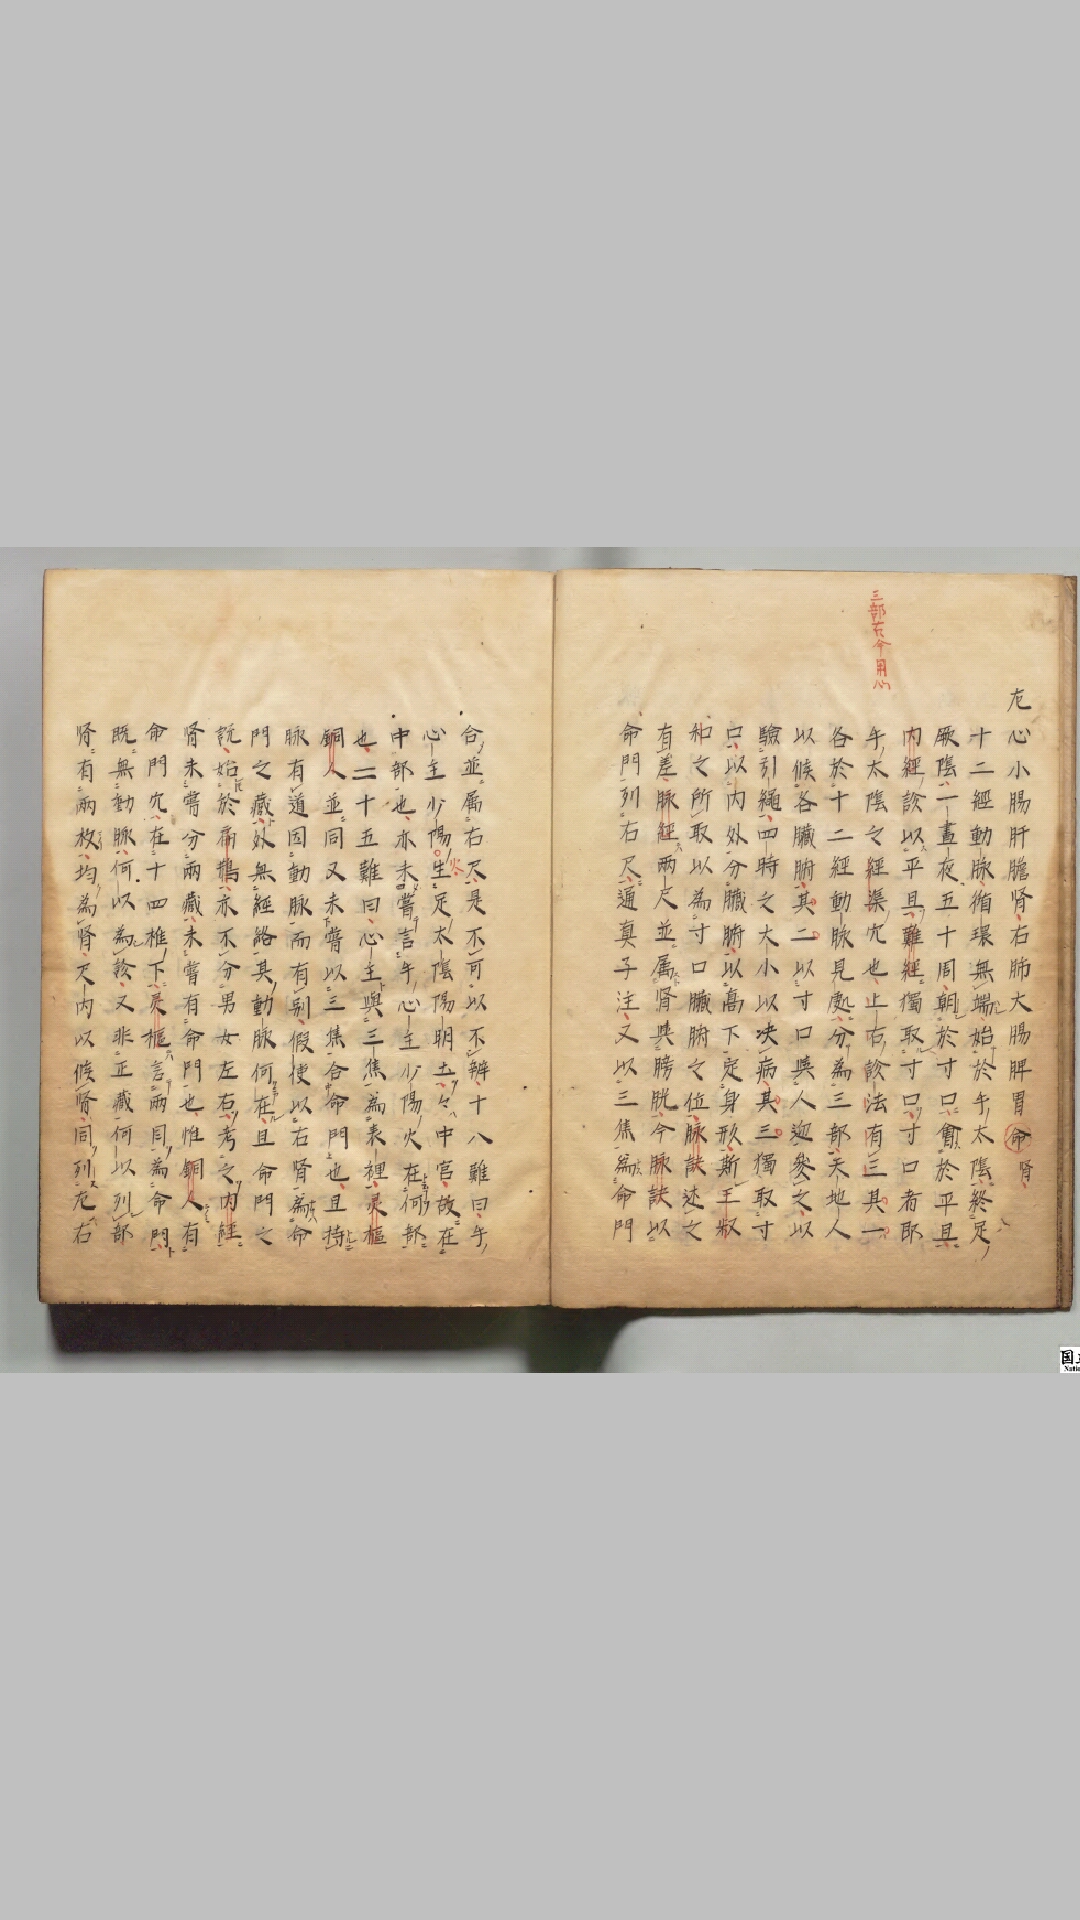 三部右命用心
左心小腸肝膽腎右肺大腸脾胃命腎
十二經動脉循環無端始於手太陰終足
厥陰一晝夜五十周朝於寸口會於平旦
内經診以平旦難經獨取寸口寸口者即
手太陰之經渠穴也上古診法有三其一
各於十二經動脉見處分為三部天地人
以候各臓腑其二以寸口與人迎參之以
驗引繩四時之大小以决病其三獨取寸
口以内外分臓腑以高下定身形斯王叔
和之所取以為寸口臓腑之位脉訣述之
有差脉經兩尺並属腎與膀胱今脉訣以
命門列右尺通真子注又以三焦為命門
合並属右尺是不可以不辨十八難曰手
心主少陽火生足太陰陽明土々中宮故在
中部也亦未嘗言手心主少陽火在何部
也二十五難曰心主與三焦為表裡灵樞
銅人並同又未嘗以三焦合命門也且持
脉有道因動脉而有別假使以右腎為命
門之藏外無經絡其動脉何在且命門之
説始於扁鵲亦不分男女左右考之内經
腎未嘗分兩藏未嘗有命門也惟銅人有
命門穴在十四椎下灵樞言兩目為命門
既無動脉何以為診又非正藏何以列部
腎有兩枚均為腎尺内以候腎同列左右